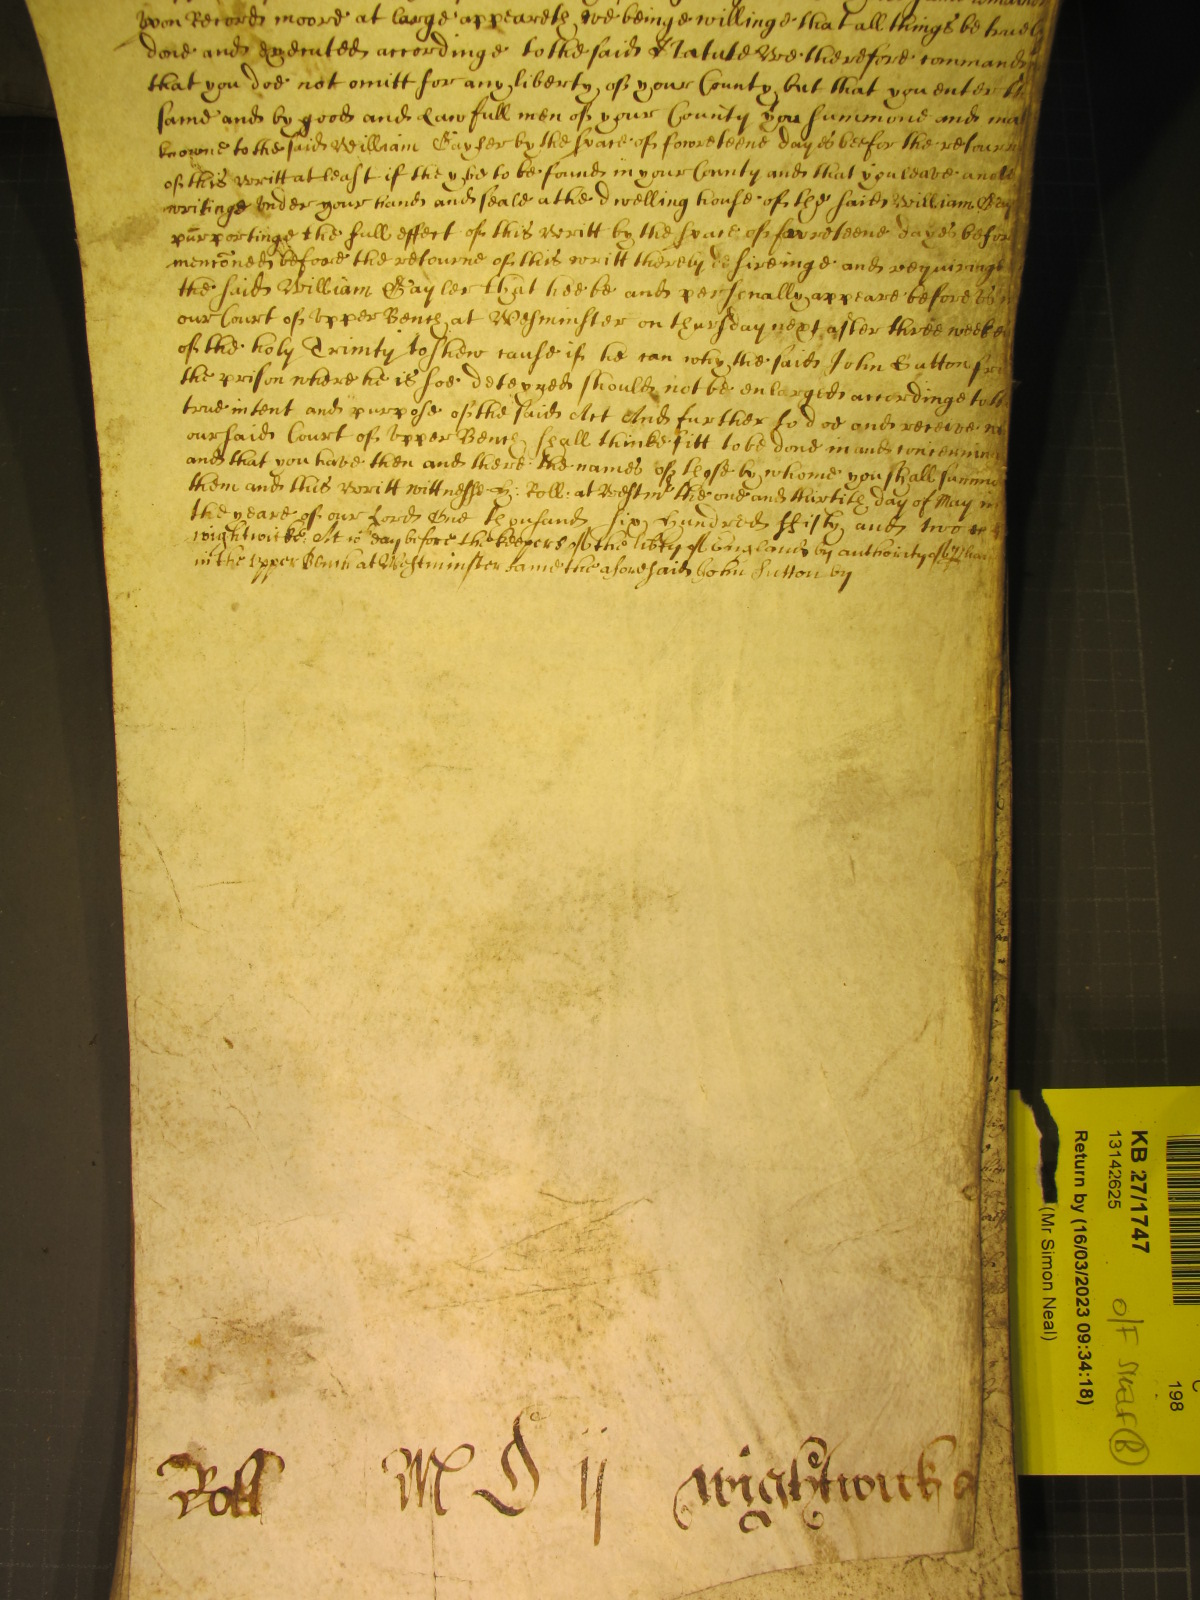 upon Record moore at large appeareth, we beinge willinge that all things be truely
done and executed accordinge to the said Statute Wee therefore command
that you doe not omitt for any liberty of your County but that you enter the
same and by good and lawfull men of your County you summone and make
knowne to the said William Gayler by the space of fowreteene dayes beefor the retourne
of this writt at least if they be to be found in your County and that you leave a note
writinge under your hand and seale at the dwelling house of the said William Gay
purportinge the full effect of this writt by the space of fowreteene dayes before
mencōned before the retourne of this writt thereby desireinge and requiringe
the said William Gayler that hee be and personally appeare before us in
our Court of Upper Bench at Wesminster on thursday next after three weekes
of the holy Trinity to shew cause if he can why the said John Sutton from
the prison where he is soe deteyned should not be enlarged accordinge to the
true intent and purpose of the said Act And further to doe and receive
our said Court of Upper Bench shall thinke fitt to be done in and concerninge
and that you have then and there the names of those by whome you shall summo
them and this writt wittnesse H: Roll: at Westmr the one and thirtith day of May in
the yeare of our Lord One thousand six hundred fifty and two
wightwicke At wch day before the keepers of the libty of England by authority of
in the upper Bench at Westminster came the aforesaid John Sutton by
Roll M D ij Wightwicke
KB 27/1747
13142625
Return by (16/03/2023 09:34:18)
(Mr Simon Neal)
O/F
198